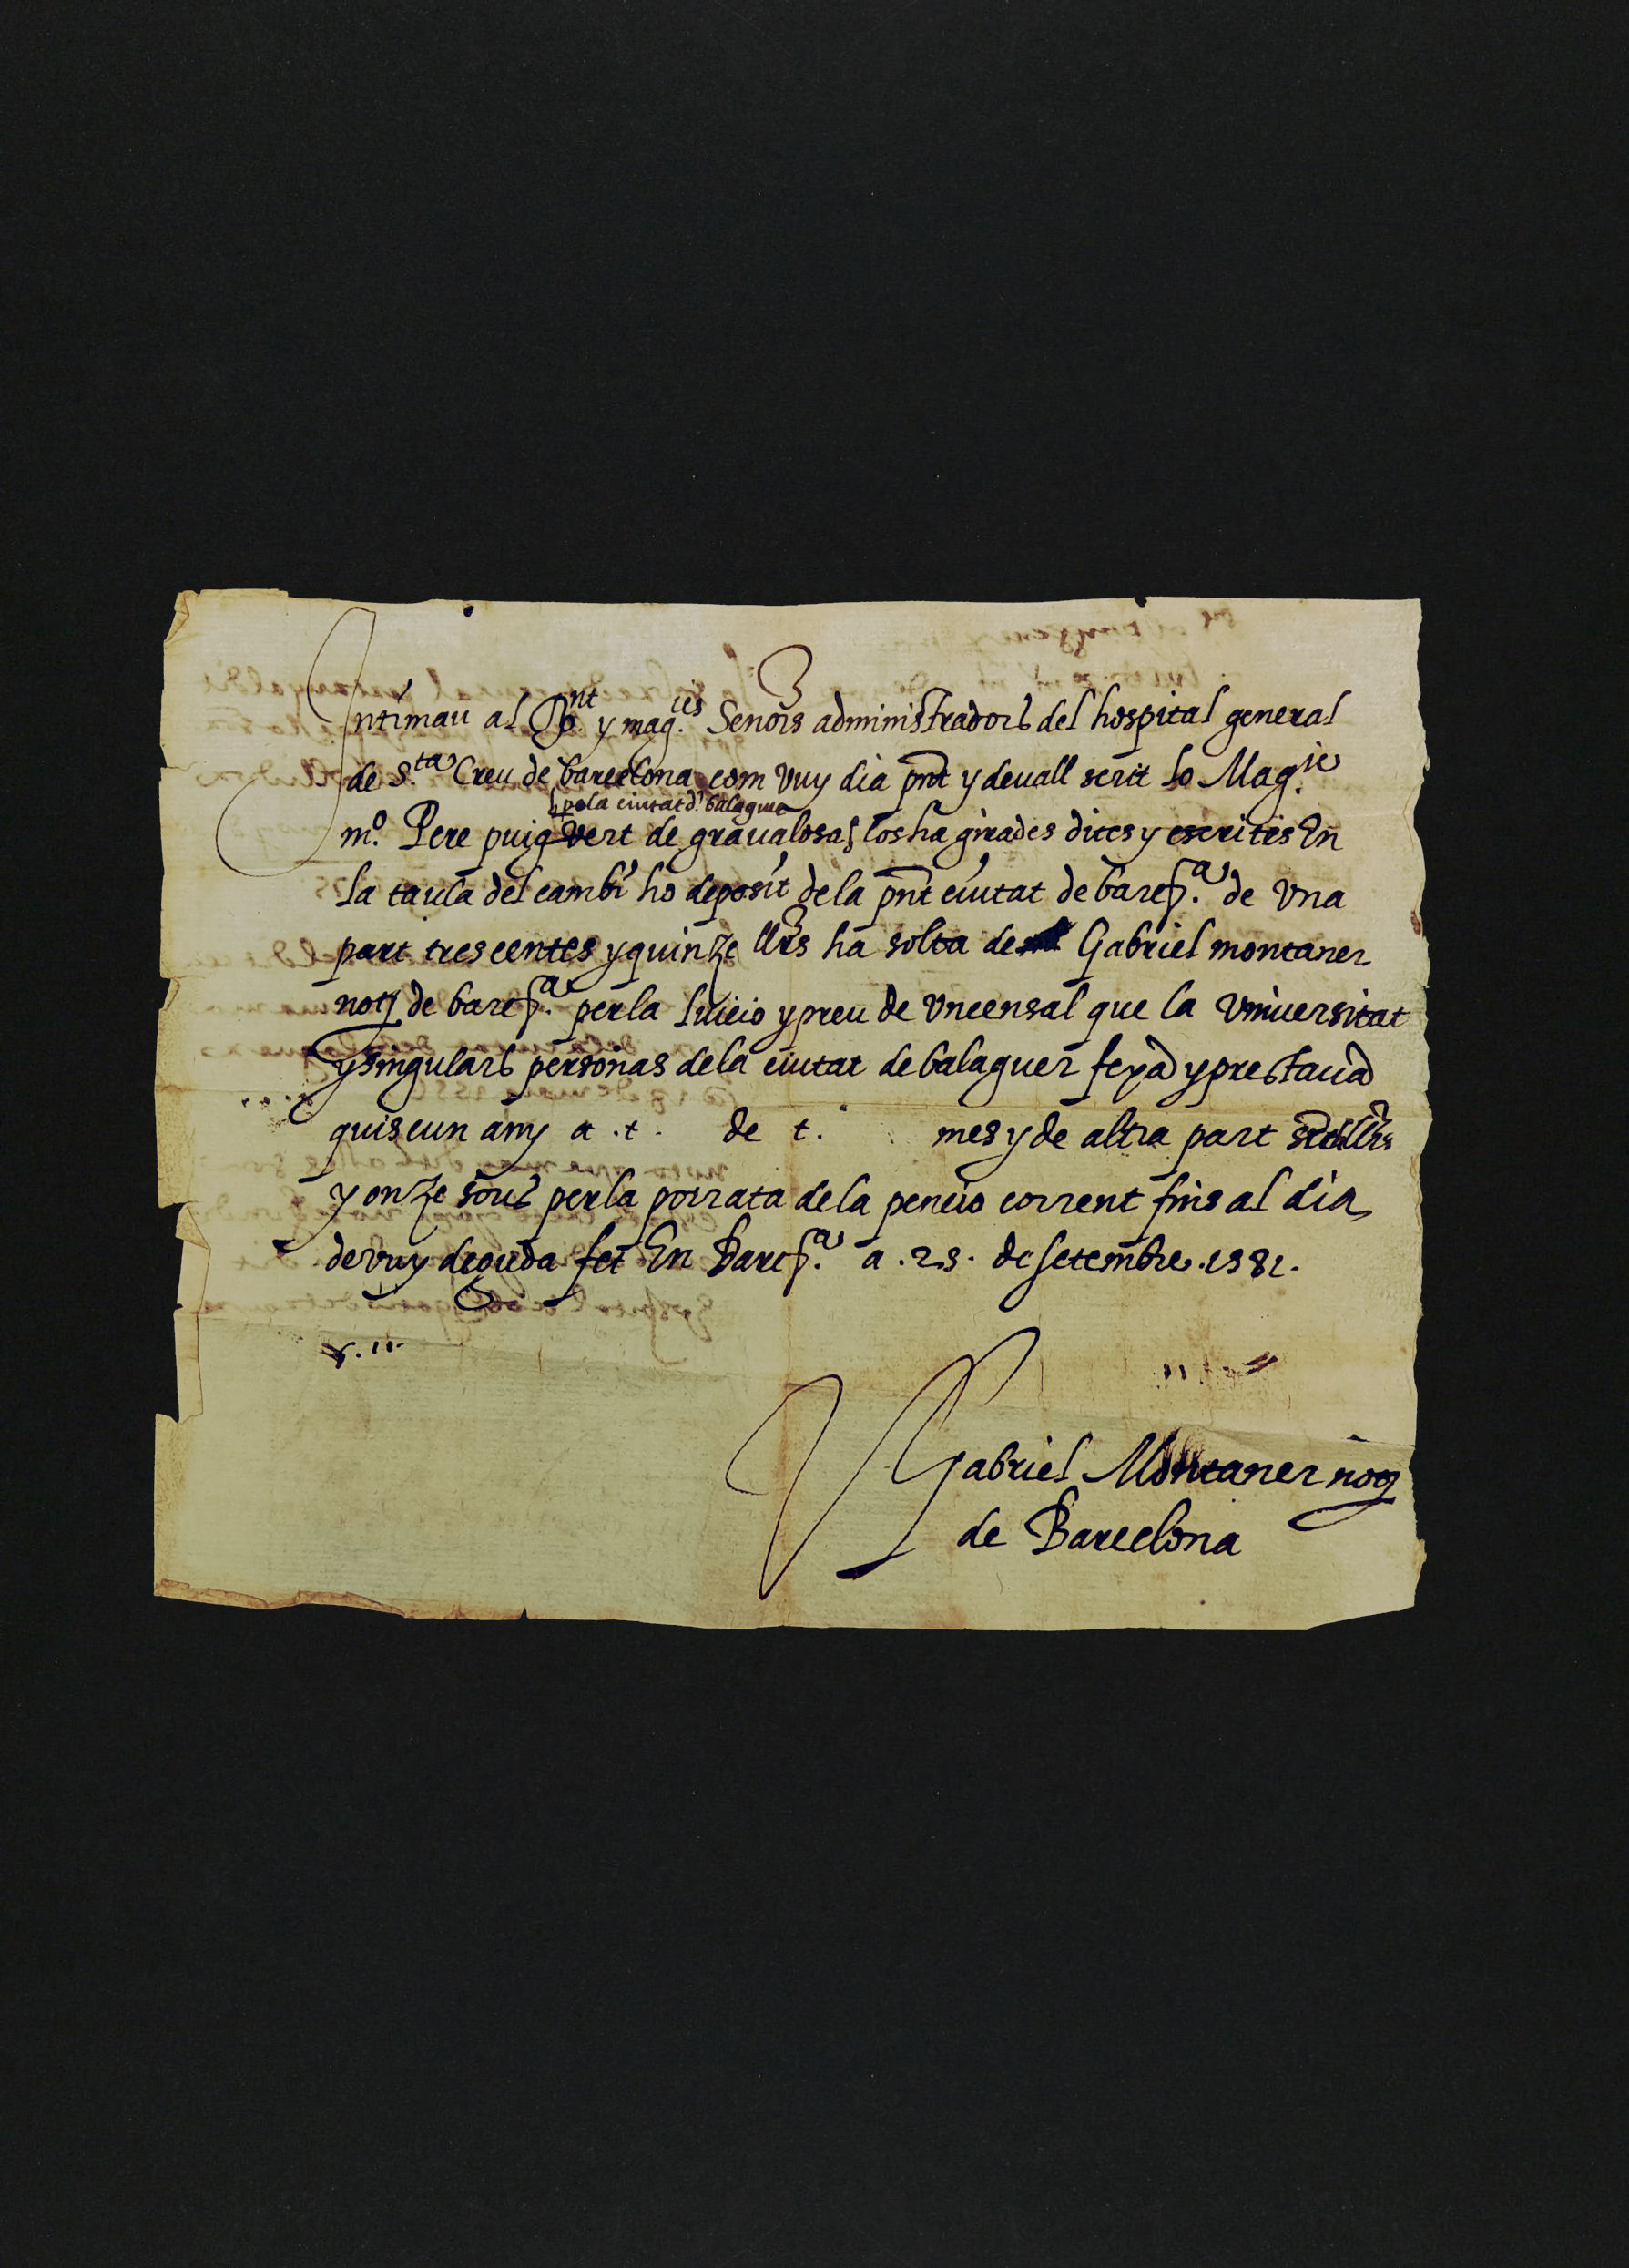 Intimau als R.nt y mag.ies Senors administradors del hospital general
de S.ta Creu de barcelona com vuy dia pnt y deuall scrit lo Mag.ic
per la ciutat d. balaguer
m.o Pere puigvert de graualosa los ha girades dites y escrites En
la taula del cambi ho deposit de la pnt ciutat de barc.a de una
part trescentes y quinze llrs ha solta de Gabriel montaner
not de barc.a per la luicio y preu de un censal que la vniuersitat
y singulars personas de la ciutat de balaguer feya y prestaua
quiscun any a .t. de t. mes y de altra part llrs
y onze sous per la porrata de la pencio corrent fins al dia
de vuy deguda fet En Barc.a a .25. de setembre .1581.
Gabriel Montaner not
de Barcelona